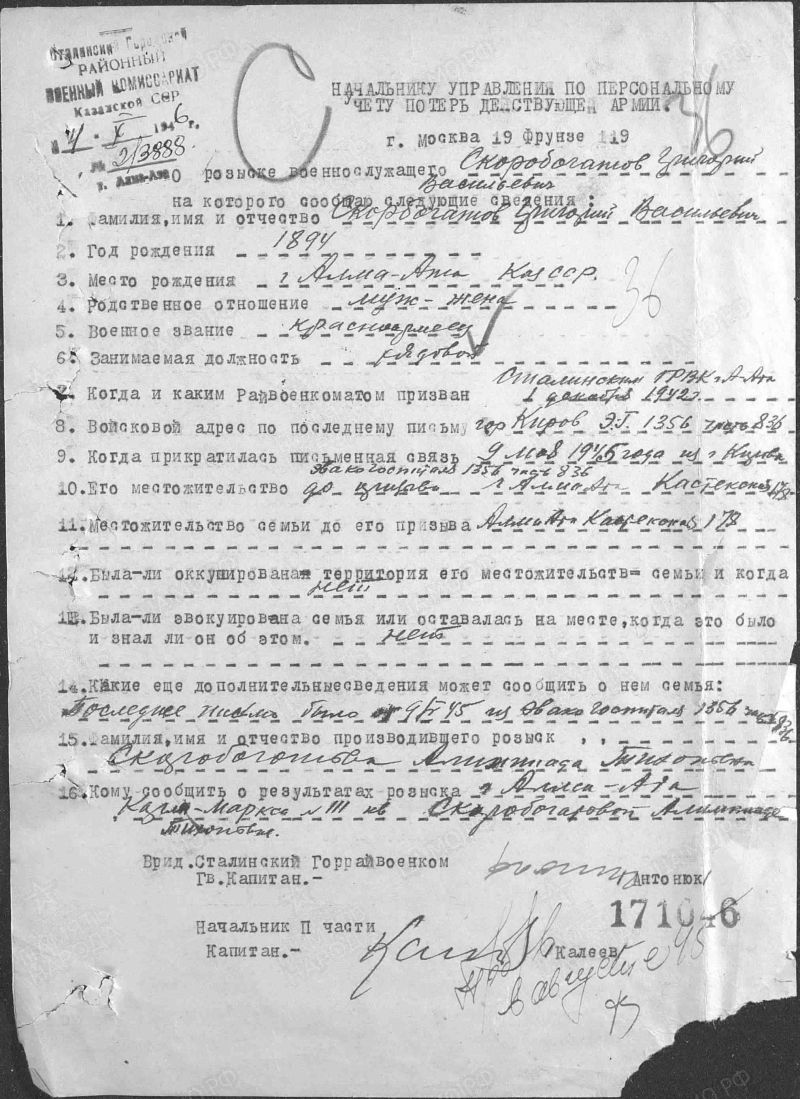 Сталинский Городской
РАЙОННЫЙ
ВОЕННЫЙ КОМИССАРИАТ
Казахской ССР
"4" X 1946 г.
№ 2/3888
г. Алма-Ата
С
НАЧАЛЬНИКУ УПРАВЛЕНИЯ ПО ПЕРСОНАЛЬНОМУ
УЧЕТУ ПОТЕРЬ ДЕЙСТВУЮЩЕЙ АРМИИ.
36
г. Москва 19 Фрунзе 119
О розыске военнослужащего Скоробогатов Григорий
Васильевич
на которого сообщаю следующие сведения:
1. Фамилия,имя и отчество Скоробогатов Григорий Васильевич
2. Год рождения 1894
3. Место рождения г Алма-Ата Каз ССР.
36
4. Родственное отношение муж-жена
5. Военное звание красноармеец
6. Занимаемая должность рядовой
7. Когда и каким Райвоенкоматом призван Сталинским ГРВК г А-Ата
1 декабря 1942 г.
8. Войсковой адрес по последнему письму гор Киров Э.Г. 1356 часть 836
9. Когда прикратилась письменная связь 9 мая 1945 года из г Кирова
Эвакогоспиталя 1356 часть 836
10.Его местожительство до призыва г Алма Ата Кастекская 178
11.Местожительство семьи до его призыва Алма Ата Кастекская 178
12.Была-ли оккупирована территория его местожительств= семьи и когда
нет
13.Была-ли эвокуирована семья или оставалась на месте,когда это было
и знал ли он об этом. нет
14.Какие еще дополнительныесведения может сообщить о нем семья:
Последнее письмо было 9/V 45 из Эвакогоспиталя 1356 часть 836
15.Фамилия,имя и отчество производившего розыск
Скоробогатова Алимпиада Тихоновна
16.Кому сообщить о результатах розыска г Алма-Ата
Карла-Маркса Скоробогатовой Алимпиаде
Тихоновне.
Врид.Сталинский Горрайвоенком
Гв.Капитан.- /Антонюк/
171046
Начальник П части
Капитан.- Калеев
в августе 45